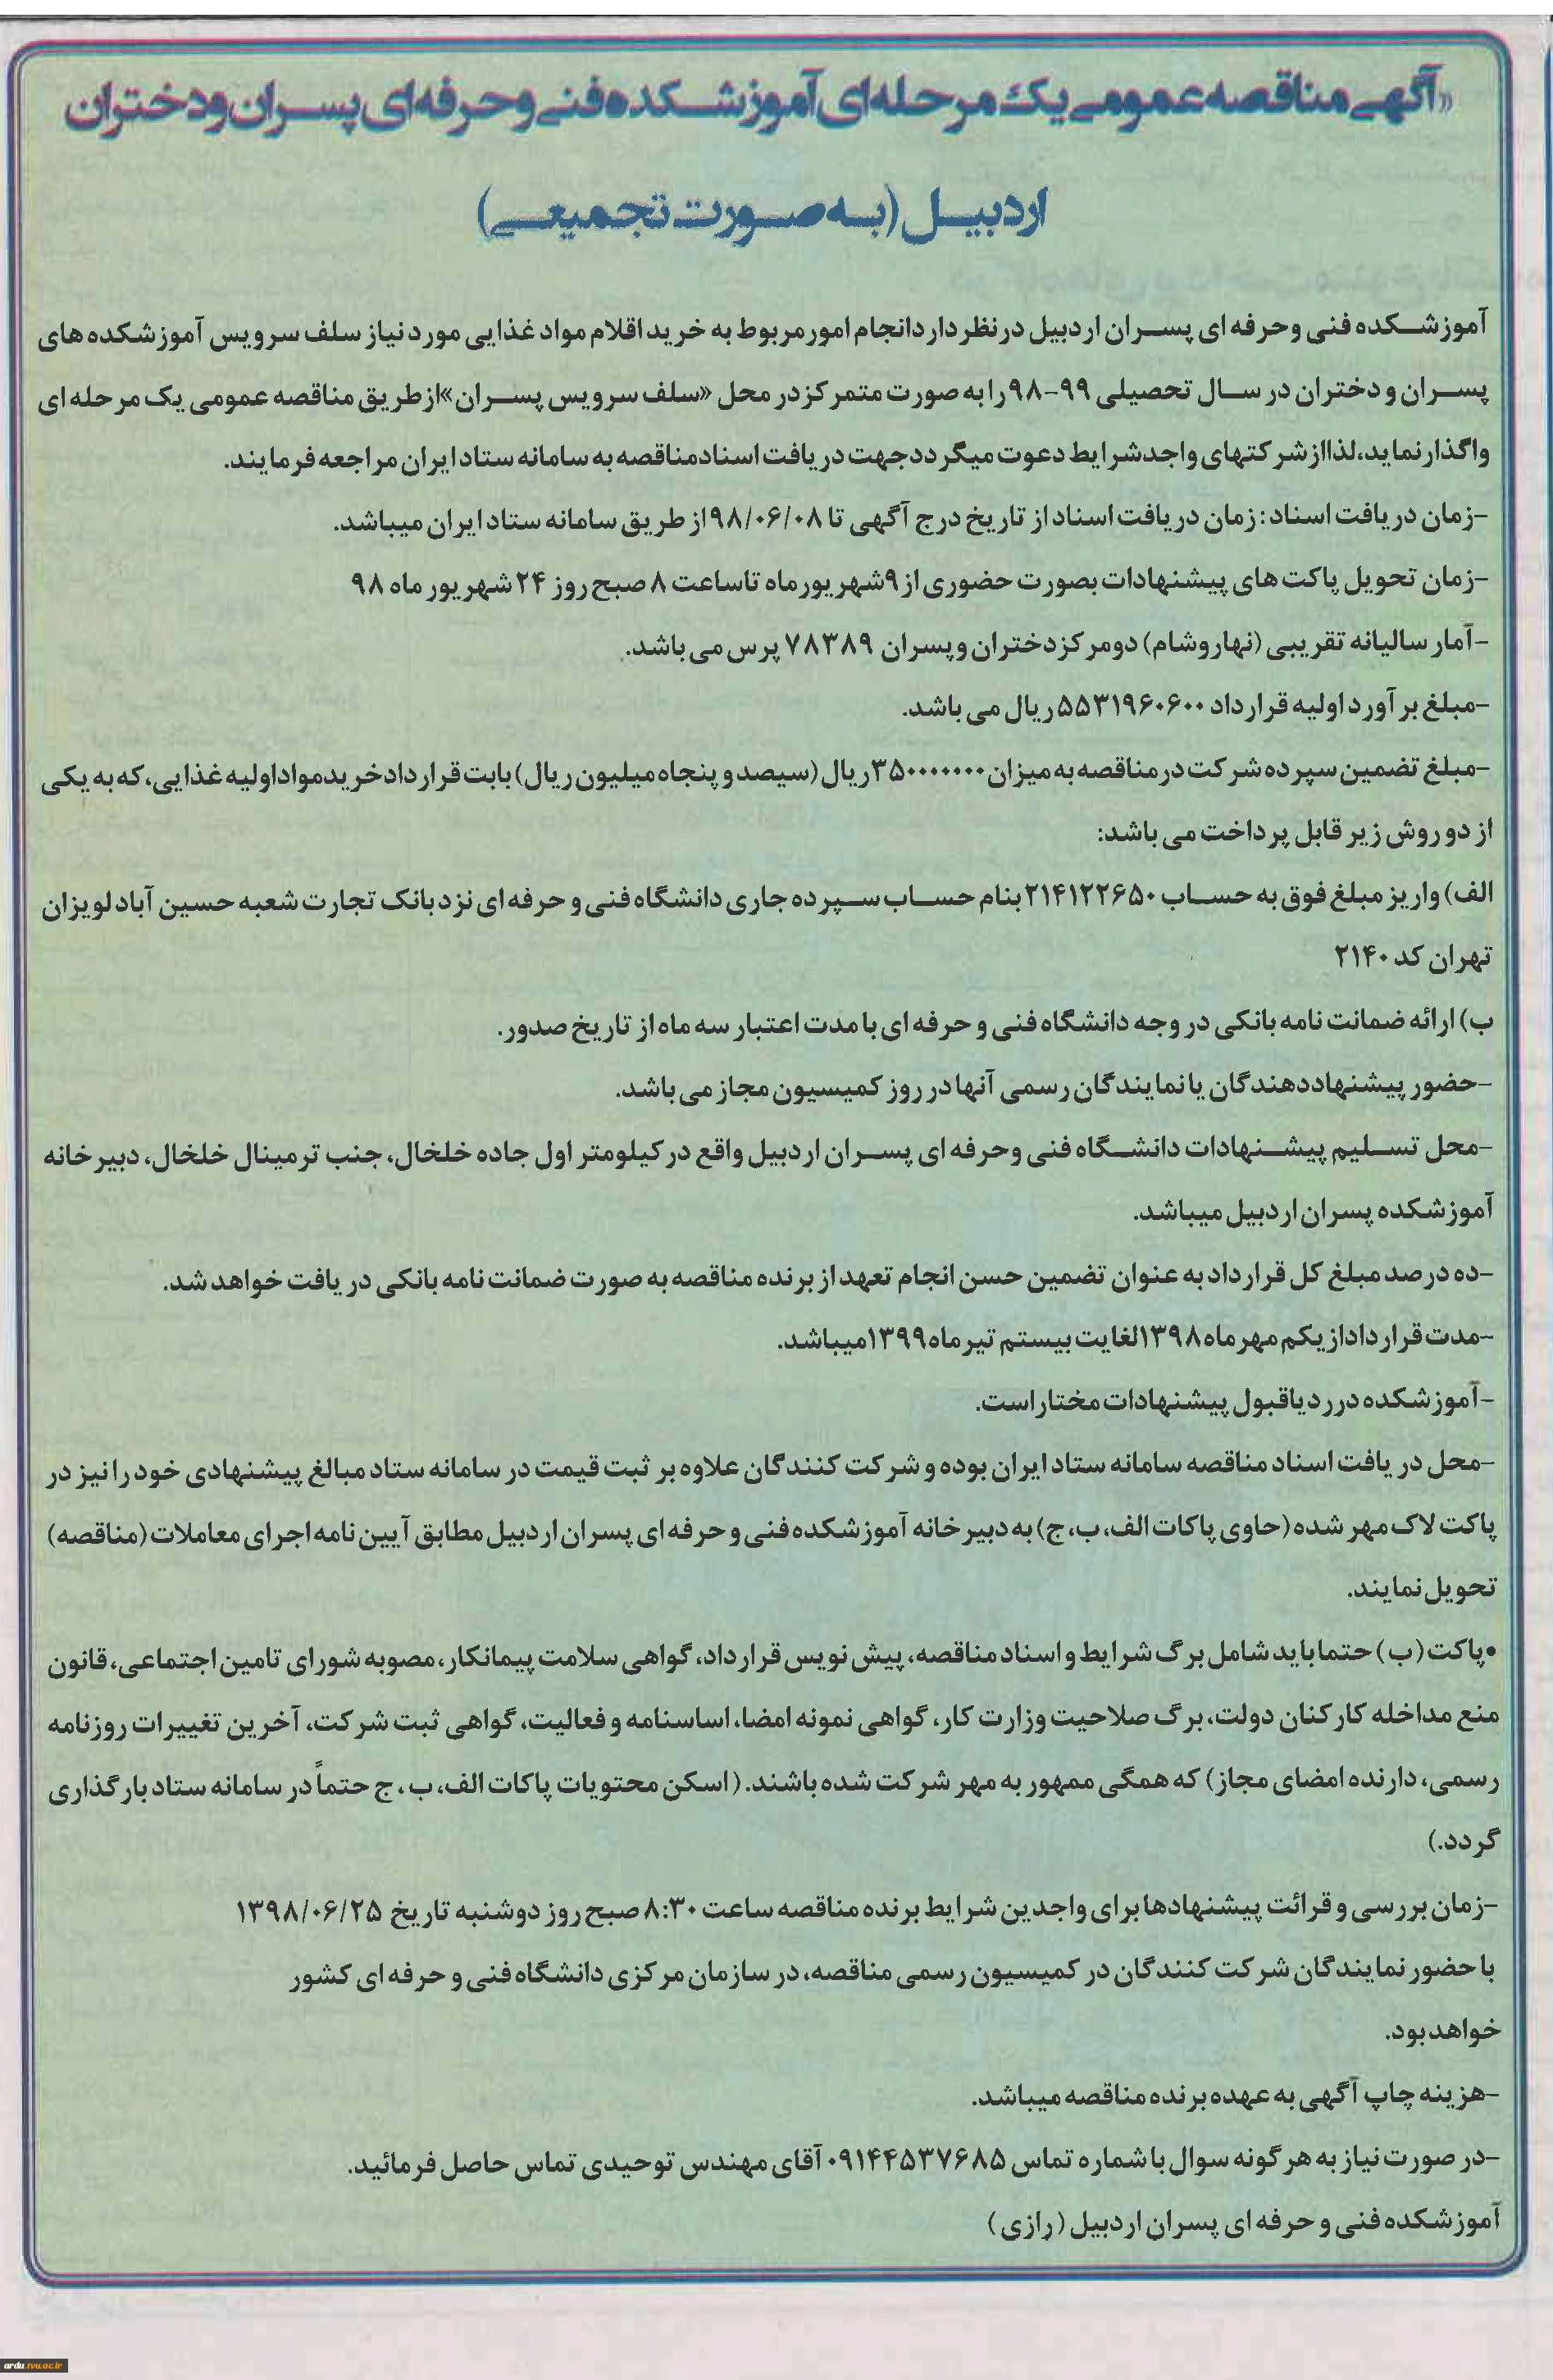 «آگهی مناقصه عمومی یک مرحله ای آموزشکده فنی و حرفه ای پسران و دختران
اردبیل (به صورت تجمیعی)
آموزشکده فنی و حرفه ای پسران اردبیل در نظر دارد انجام امور مربوط به خرید اقلام مواد غذایی مورد نیاز سلف سرویس آموزشکده های
پسران و دختران در سال تحصیلی ۹۹-۹۸ را به صورت متمرکز در محل «سلف سرویس پسران» از طریق مناقصه عمومی یک مرحله ای
واگذار نماید، لذا از شرکتهای واجد شرایط دعوت میگردد جهت دریافت اسناد مناقصه به سامانه ستاد ایران مراجعه فرمایند.
-زمان دریافت اسناد: زمان دریافت اسناد از تاریخ درج آگهی تا ۹۸/۰۶/۰۸ از طریق سامانه ستاد ایران میباشد.
-زمان تحویل پاکت های پیشنهادات بصورت حضوری از ۹ شهریور ماه تا ساعت ۸ صبح روز ۲۴ شهریور ماه ۹۸
-آمار سالیانه تقریبی (نهار و شام) دو مرکز دختران و پسران ۷۸۳۸۹ پرس می باشد.
-مبلغ برآورد اولیه قرارداد ۵۵۳۱۹۶۰۶۰۰ ریال می باشد.
-مبلغ تضمین سپرده شرکت در مناقصه به میزان ۳۵۰۰۰۰۰۰۰ ریال (سیصد و پنجاه میلیون ریال) بابت قرارداد خرید مواد اولیه غذایی، که به یکی
از دو روش زیر قابل پرداخت می باشد:
الف) واریز مبلغ فوق به حساب ۲۱۴۱۲۲۶۵۰ بنام حساب سپرده جاری دانشگاه فنی و حرفه ای نزد بانک تجارت شعبه حسین آباد لویزان
تهران کد ۲۱۴۰
ب) ارائه ضمانت نامه بانکی در وجه دانشگاه فنی و حرفه ای با مدت اعتبار سه ماه از تاریخ صدور.
-حضور پیشنهاد دهندگان یا نمایندگان رسمی آنها در روز کمیسیون مجاز می باشد.
-محل تسلیم پیشنهادات دانشگاه فنی و حرفه ای پسران اردبیل واقع در کیلومتر اول جاده خلخال، جنب ترمینال خلخال، دبیرخانه
آموزشکده پسران اردبیل میباشد.
-ده درصد مبلغ کل قرارداد به عنوان تضمین حسن انجام تعهد از برنده مناقصه به صورت ضمانت نامه بانکی دریافت خواهد شد.
-مدت قرارداد از یکم مهر ماه ۱۳۹۸ لغایت بیستم تیر ماه ۱۳۹۹ میباشد.
-آموزشکده در رد یا قبول پیشنهادات مختار است.
-محل دریافت اسناد مناقصه سامانه ستاد ایران بوده و شرکت کنندگان علاوه بر ثبت قیمت در سامانه ستاد مبالغ پیشنهادی خود را نیز در
پاکت لاک مهر شده (حاوی پاکات الف، ب، ج) به دبیرخانه آموزشکده فنی و حرفه ای پسران اردبیل مطابق آیین نامه اجرای معاملات (مناقصه)
تحویل نمایند.
•پاکت (ب) حتما باید شامل برگ شرایط و اسناد مناقصه، پیش نویس قرارداد، گواهی سلامت پیمانکار، مصوبه شورای تامین اجتماعی، قانون
منع مداخله کارکنان دولت، برگ صلاحیت وزارت کار، گواهی نمونه امضا، اساسنامه و فعالیت، گواهی ثبت شرکت، آخرین تغییرات روزنامه
رسمی، دارنده امضای مجاز) که همگی ممهور به مهر شرکت شده باشند. (اسکن محتویات پاکات الف، ب، ج حتماً در سامانه ستاد بارگذاری
گردد.)
-زمان بررسی و قرائت پیشنهادها برای واجدین شرایط برنده مناقصه ساعت ۸:۳۰ صبح روز دوشنبه تاریخ ۱۳۹۸/۰۶/۲۵
با حضور نمایندگان شرکت کنندگان در کمیسیون رسمی مناقصه، در سازمان مرکزی دانشگاه فنی و حرفه ای کشور
خواهد بود.
-هزینه چاپ آگهی به عهده برنده مناقصه میباشد.
-در صورت نیاز به هر گونه سوال با شماره تماس ۰۹۱۴۴۵۳۷۶۸۵ آقای مهندس توحیدی تماس حاصل فرمائید.
آموزشکده فنی و حرفه ای پسران اردبیل (رازی)
ardu.tvu.ac.ir